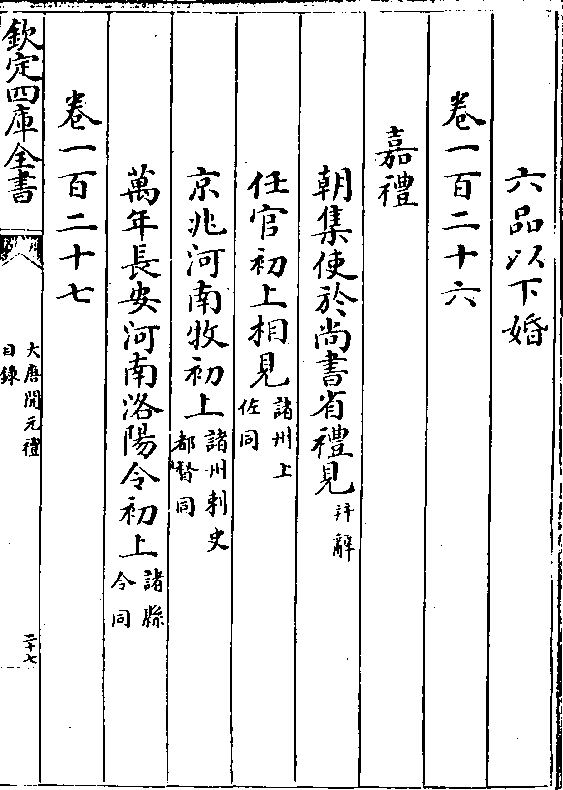 六品以下婚
卷一百二十六
嘉禮
朝集使於尚書省禮見并辭
任官初上相見諸州上佐同
京兆河南牧初上諸州刺史都督同
萬年長安河南洛陽令初上諸縣令同
卷一百二十七
欽定四庫全書
大唐開元禮
目錄
二十七